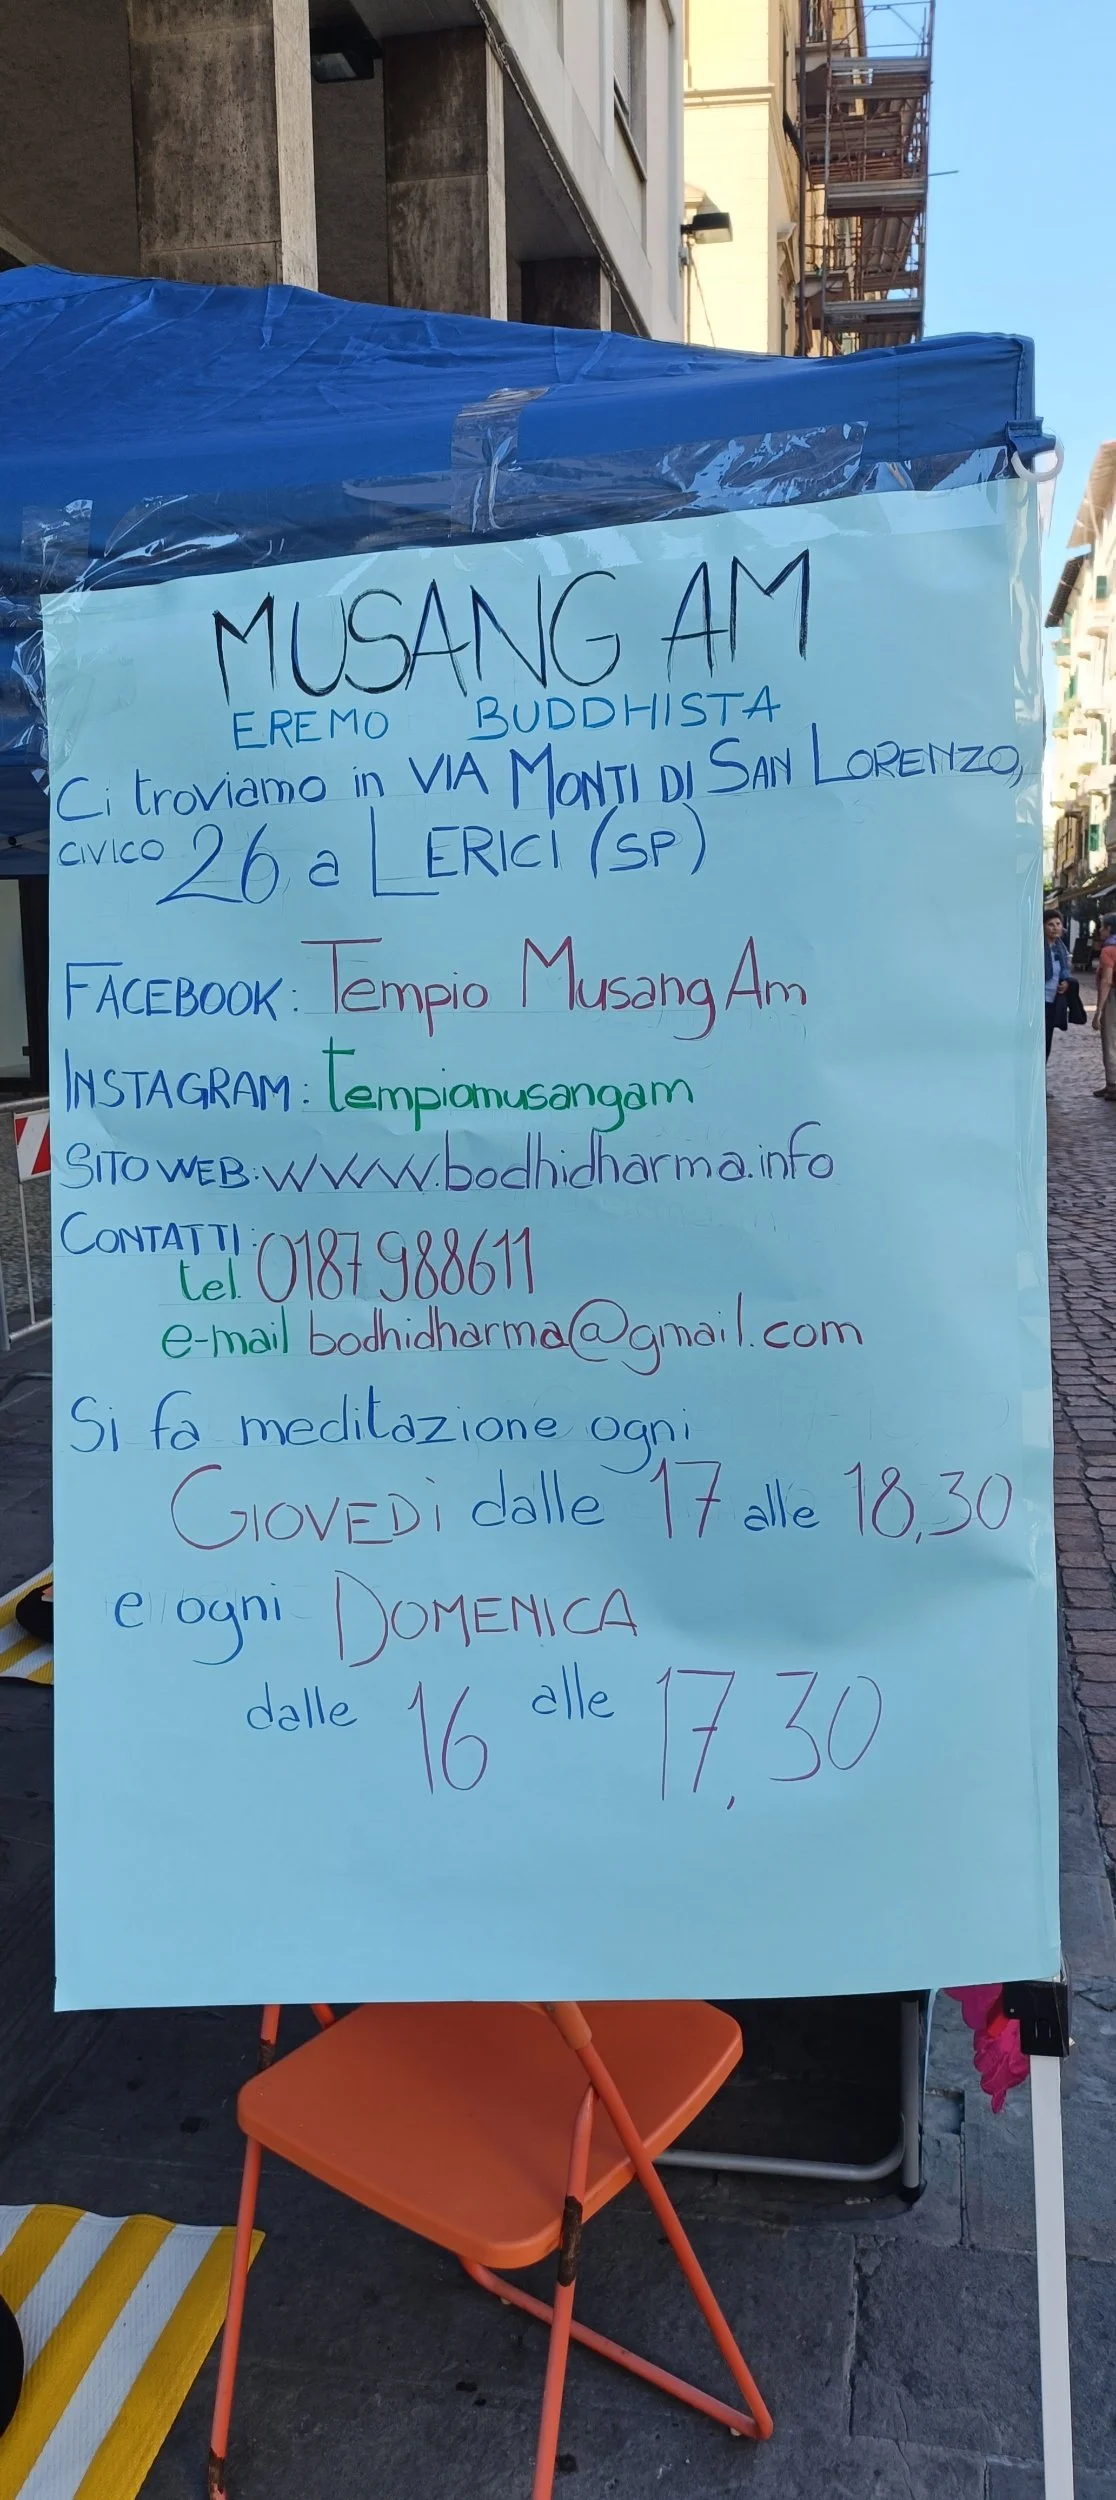 MUSANG AM
EREMO BUDDHISTA
Ci troviamo in VIA MONTI DI SAN LORENZO,
CIVICO 26, a LERICI (SP)
FACEBOOK: Tempio Musang Am
INSTAGRAM: tempiomusangam
SITO WEB: www.bodhidharma.info
CONTATTI:
tel. 0187 988611
e-mail bodhidharma@gmail.com
Si fa meditazione ogni
GIOVEDÌ dalle 17 alle 18,30
e ogni DOMENICA
dalle 16 alle 17,30